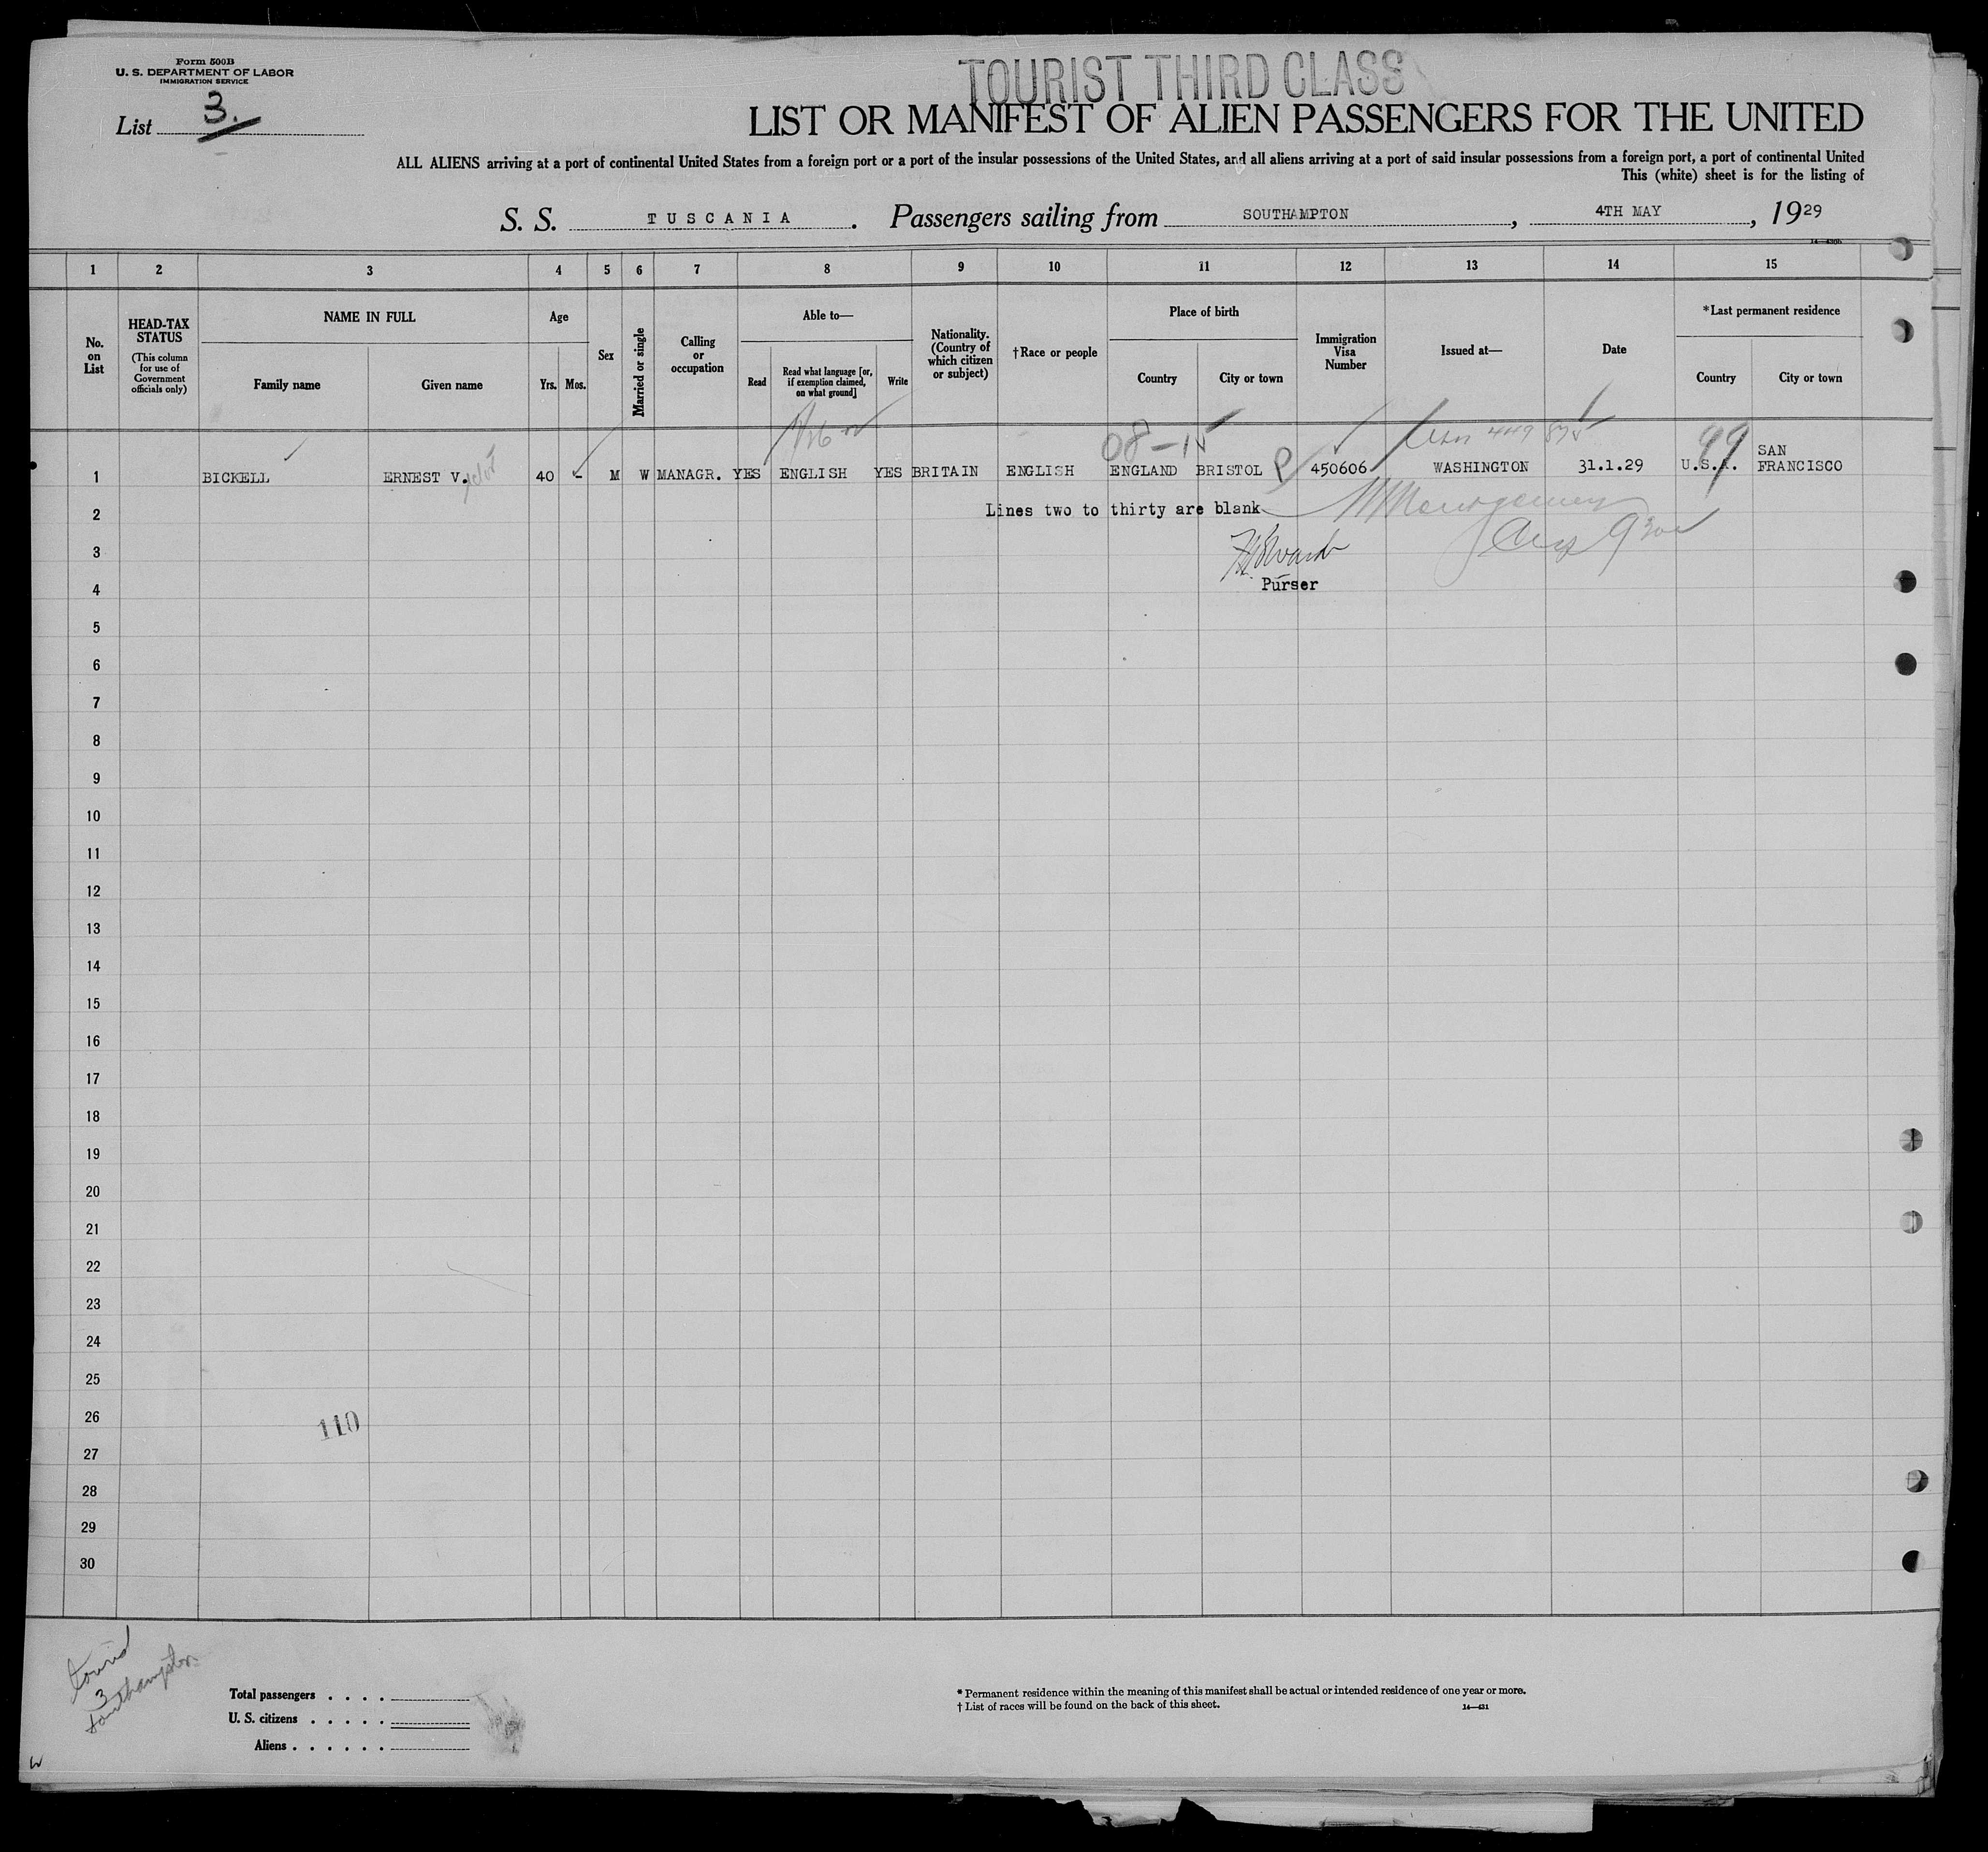 TOURIST THIRD CLASS
Form 500B
U. S. DEPARTMENT OF LABOR
IMMIGRATION SERVICE
List 3.
LIST OR MANIFEST OF ALIEN PASSENGERS FOR THE UNITED
ALL ALIENS arriving at a port of continental United States from a foreign port or a port of the insular possessions of the United States, and all aliens arriving at a port of said insular possessions from a foreign port, a port of continental United
This (white) sheet is for the listing of
S. S. TUSCANIA. Passengers sailing from SOUTHAMPTON, 4TH MAY, 1929
1 2 3 4 5 6 7 8 9 10 11 12 13 14 15
No. on List
HEAD-TAX STATUS
(This column for use of Government officials only)
NAME IN FULL
Family name
Given name
Age
Yrs. Mos.
Sex
Married or single
Calling or occupation
Able to—
Read
Read what language [or, if exemption claimed, on what ground]
Write
Nationality. (Country of which citizen or subject)
†Race or people
Place of birth
Country
City or town
Immigration Visa Number
Issued at—
Date
*Last permanent residence
Country
City or town
08-15
99
1 BICKELL ERNEST V. 40 - M W MANAGR. YES ENGLISH YES BRITAIN ENGLISH ENGLAND BRISTOL P 450606 WASHINGTON 31.1.29 U.S.A. SAN FRANCISCO
2 Lines two to thirty are blank
3
4 Purser
5
6
7
8
9
10
11
12
13
14
15
16
17
18
19
20
21
22
23
24
25
26
110
27
28
29
30
3
Southampton
Total passengers . . . .
U. S. citizens . . . . .
Aliens . . . . . .
* Permanent residence within the meaning of this manifest shall be actual or intended residence of one year or more.
† List of races will be found on the back of this sheet.
14—431